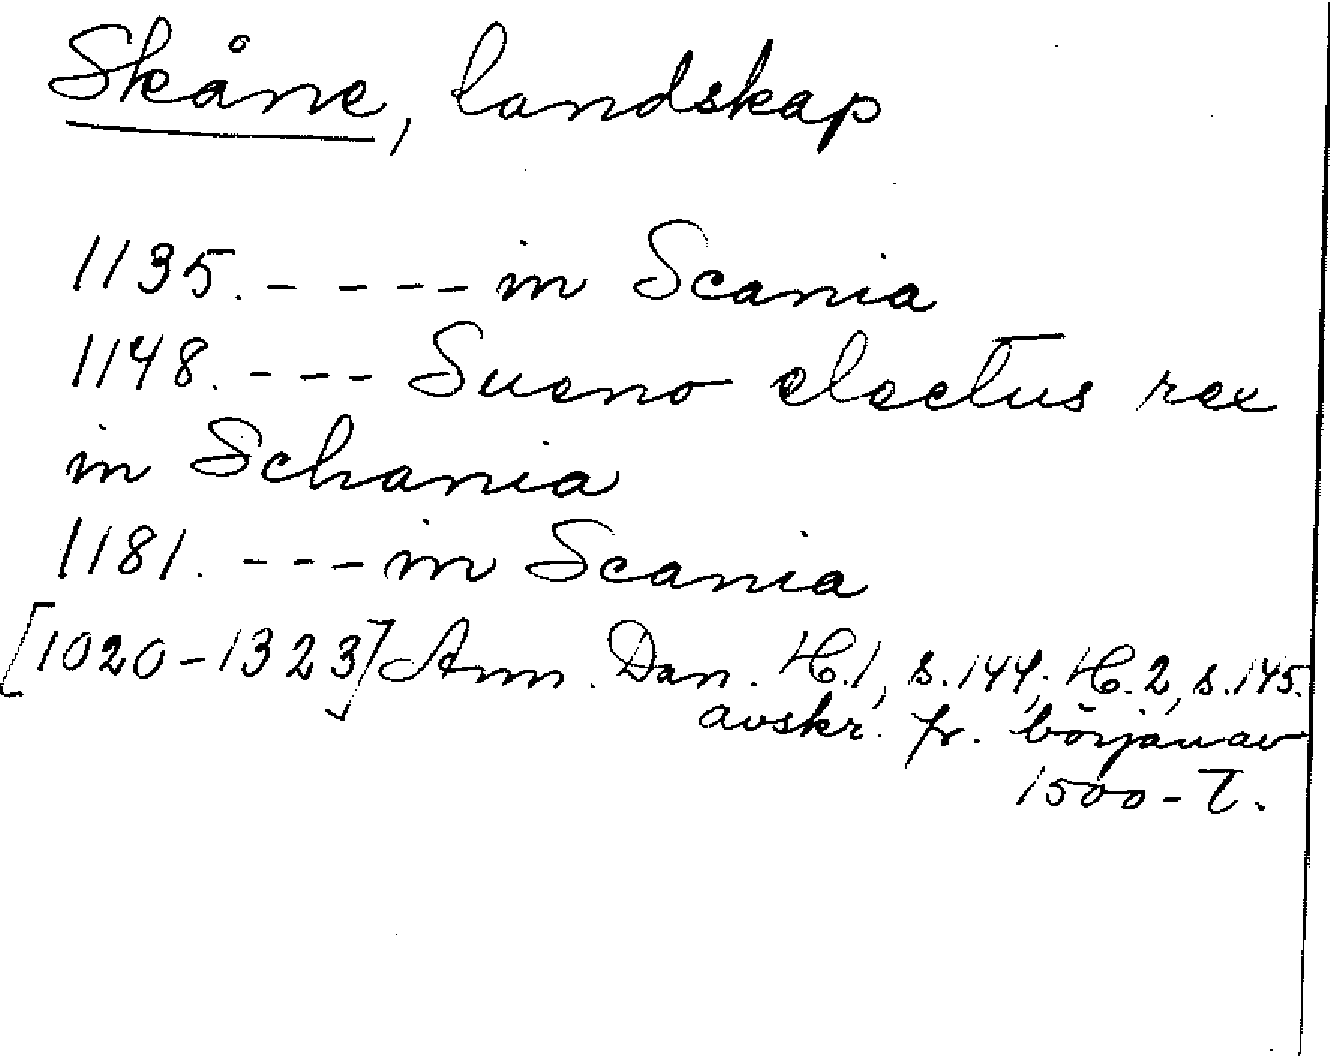 Skåne, landskap
1135. - - - - in Scania
1148. - - - Sueno electus rex
in Schania
1181. - - - in Scania
[1020-1323] Ann. Dan. H.1, s.144; H.2, s.145.
avskr. fr. början av
1500-T.